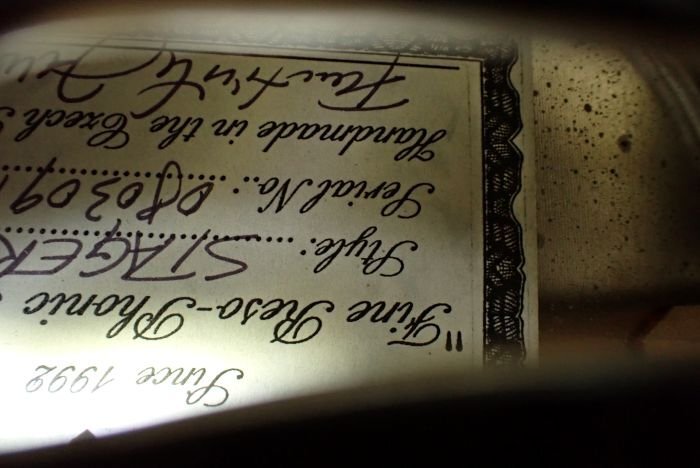 Since 1992
"Fine Reso-Phonic
Style: STAGER
Serial No.: 080309
Handmade in the Czech